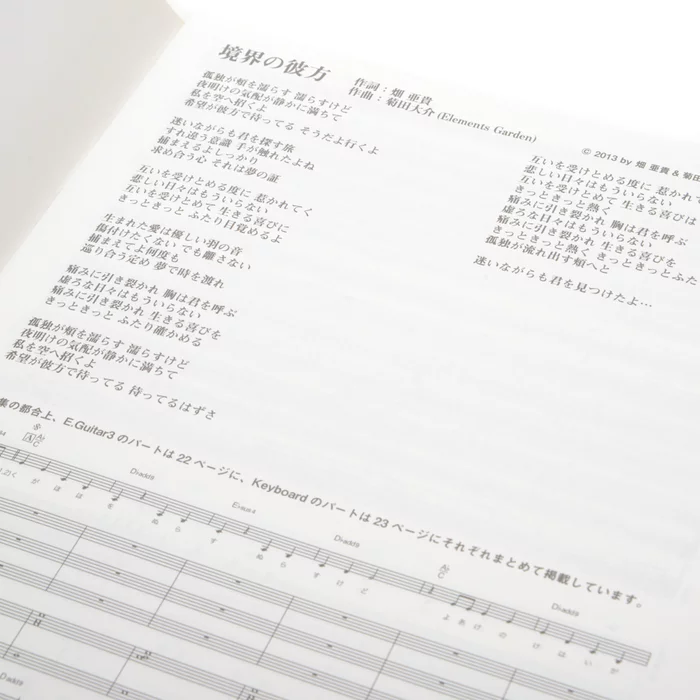 境界の彼方
作詞：畑 亜貴
作曲：菊田大介 (Elements Garden)
© 2013 by 畑 亜貴 & 菊田
孤独が頬を濡らす 濡らすけど
夜明けの気配が静かに満ちて
私を空へ招くよ
希望が彼方で待ってる そうだよ行くよ
迷いながらも君を探す旅
すれ違う意識 手が触れたよね
捕まえるよしっかり
求め合う心 それは夢の証
互いを受けとめる度に 惹かれてく
悲しい日々はもういらない
互いを受けとめて 生きる喜びに
きっときっと ふたり目覚めるよ
生まれた愛は優しい羽の音
傷付けたくない でも離さない
捕まえてよ何度も
巡り合う定め 夢で時を渡れ
痛みに引き裂かれ 胸は君を呼ぶ
虚ろな日々はもういらない
痛みに引き裂かれ 生きる喜びを
きっときっと ふたり確かめる
孤独が頬を濡らす 濡らすけど
夜明けの気配が静かに満ちて
私を空へ招くよ
希望が彼方で待ってる 待ってるはずさ
互いを受けとめる度に 惹かれて
悲しい日々はもういらない
互いを受けとめて 生きる喜びに
きっときっと熱く
痛みに引き裂かれ 胸は君を呼ぶ
虚ろな日々はもういらない
痛みに引き裂かれ 生きる喜びを
きっときっと熱く きっときっとふた
孤独が流れ出す頬へと
迷いながらも君を見つけたよ…
集の都合上、E.Guitar3 のパートは 22 ページに、Keyboard のパートは 23 ページにそれぞれまとめて掲載しています。
D♭add9 E♭sus4 D♭add9 D♭add9
く が ほほ を ぬ ら す ぬ ら す け ど よ あ け の け は い が